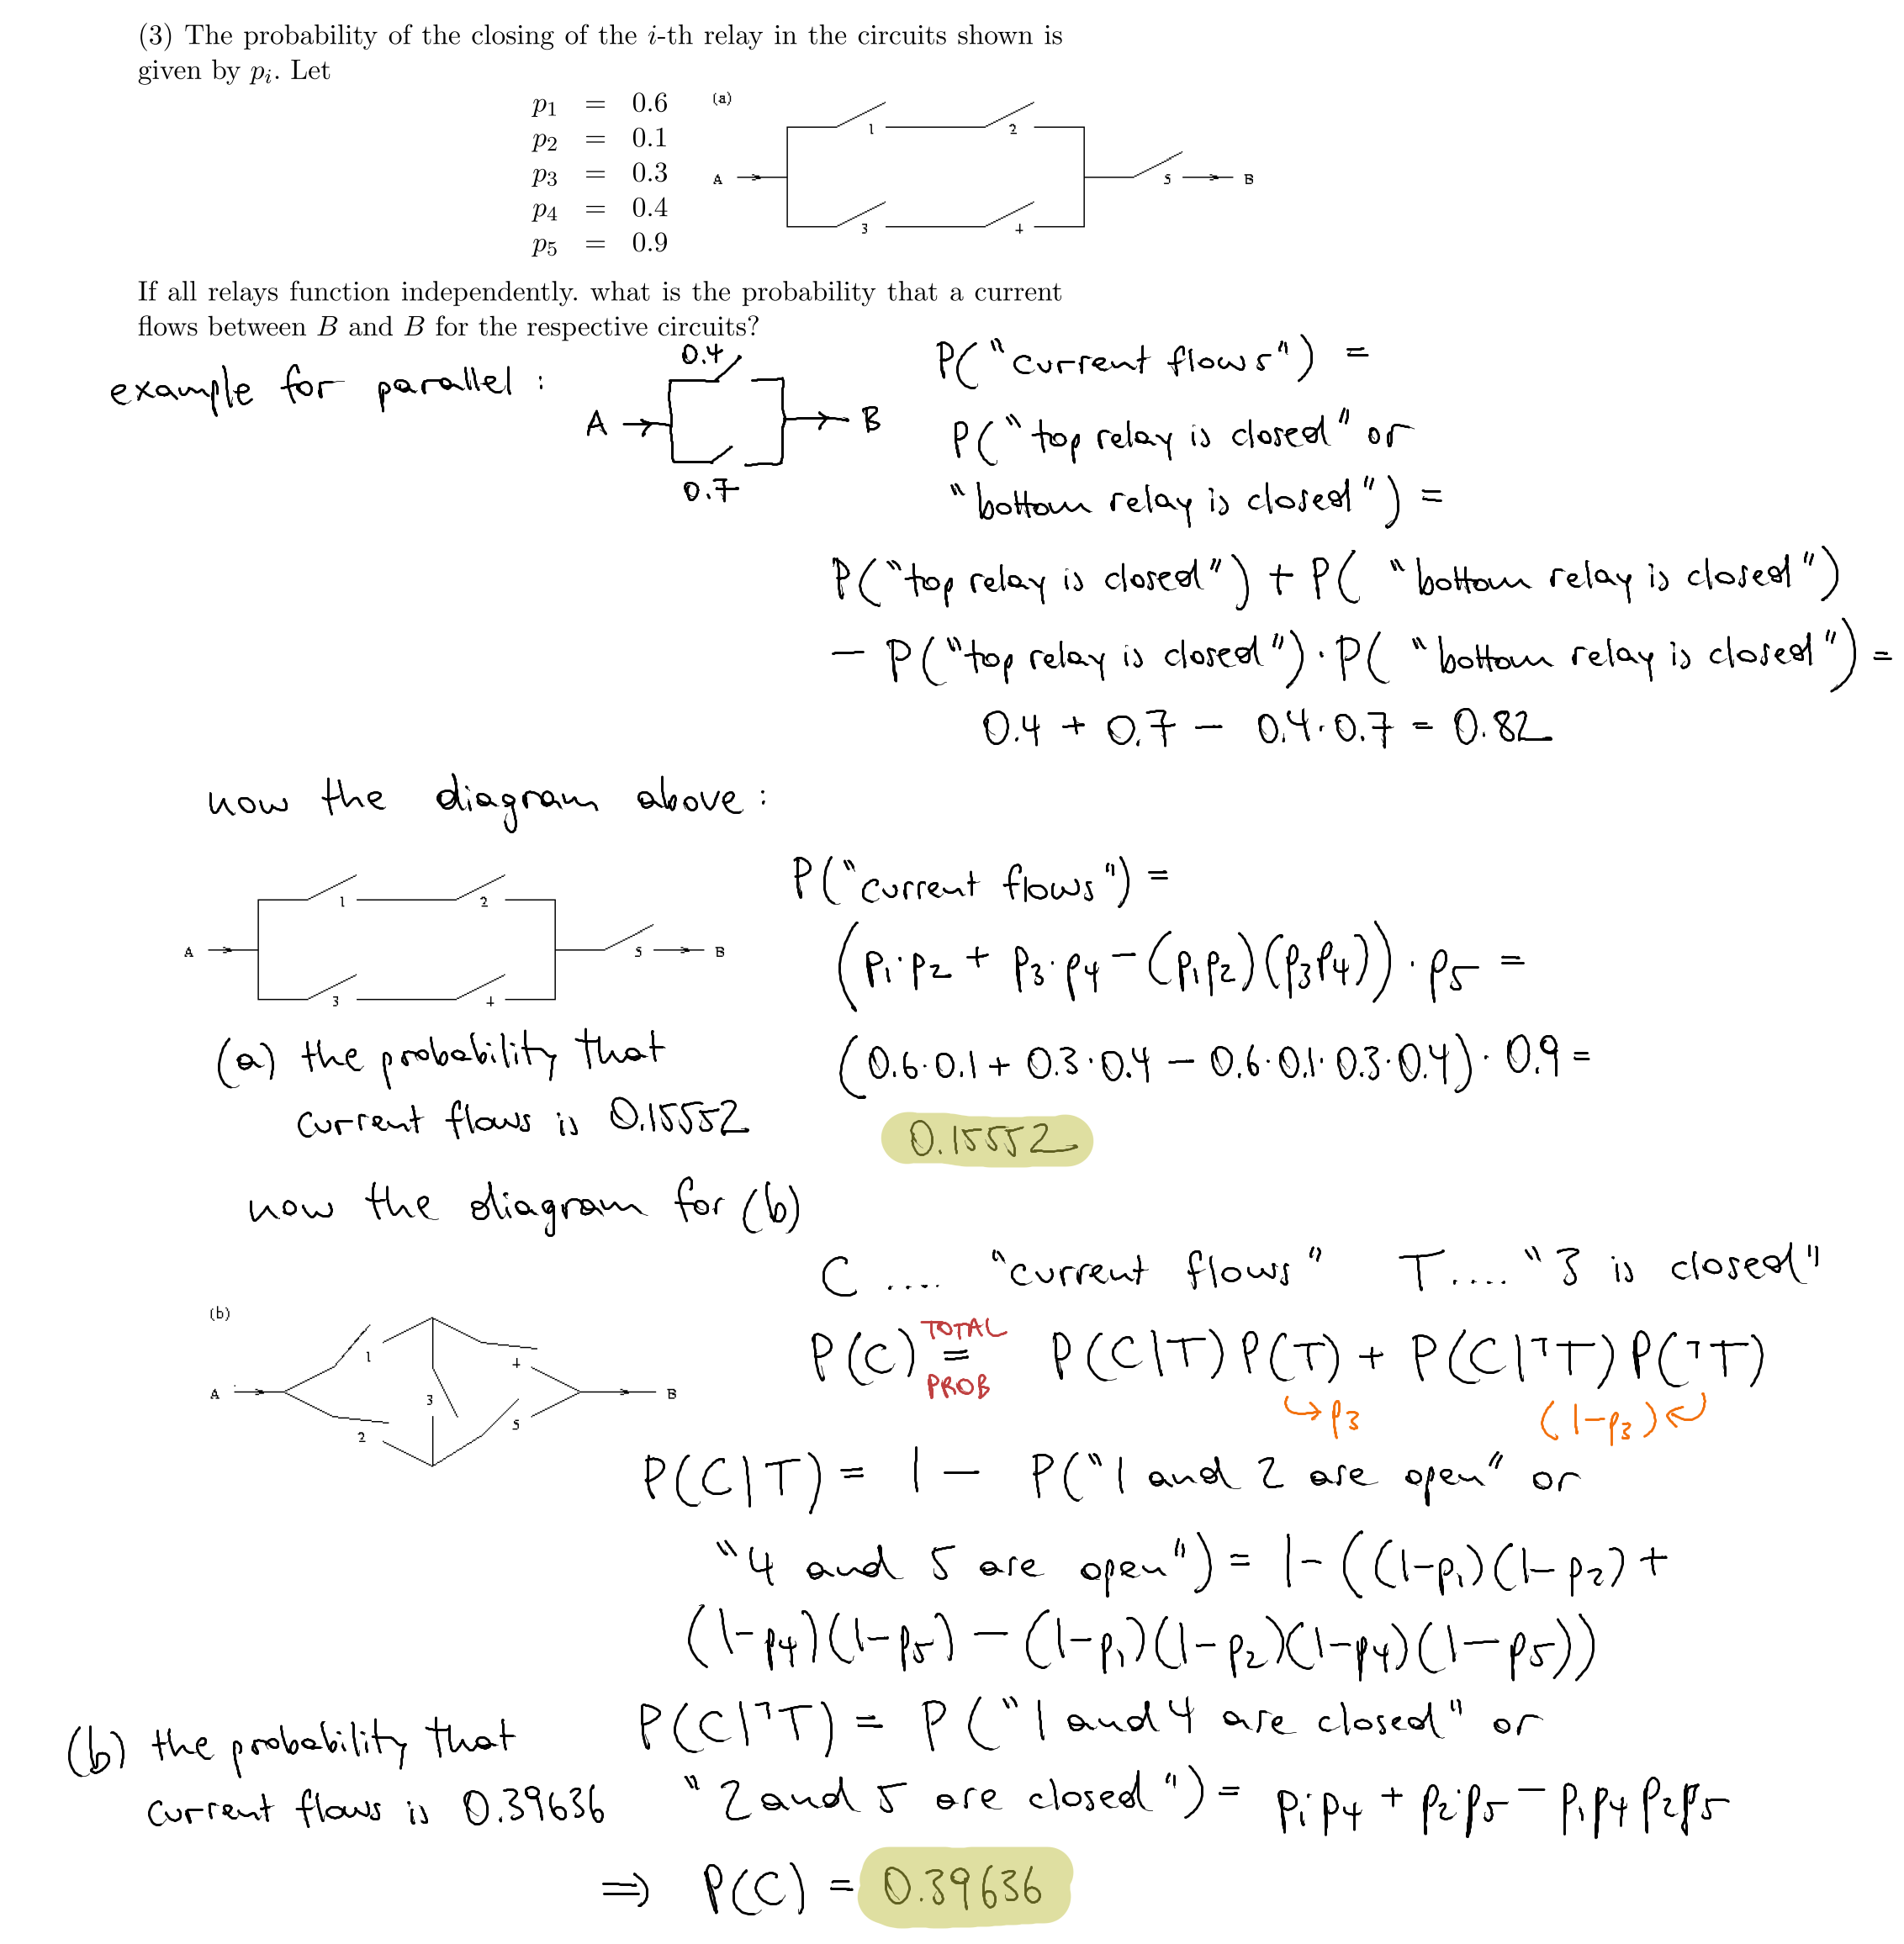 (3) The probability of the closing of the i-th relay in the circuits shown is
given by pᵢ. Let
p₁ = 0.6
p₂ = 0.1
p₃ = 0.3
p₄ = 0.4
p₅ = 0.9
(a)
1
2
A
5
B
3
4
If all relays function independently. what is the probability that a current
flows between B and B for the respective circuits?
example for parallel :
0.4
A
B
0.7
P("current flows") =
P("top relay is closed" or
"bottom relay is closed") =
P("top relay is closed") + P( "bottom relay is closed")
− P("top relay is closed") · P( "bottom relay is closed") =
0.4 + 0.7 − 0.4·0.7 = 0.82
now the diagram above :
1
2
A
5
B
3
4
P("current flows") =
(p₁·p₂ + p₃·p₄ − (p₁p₂)(p₃p₄)) · p₅ =
(0.6·0.1 + 0.3·0.4 − 0.6·0.1·0.3·0.4) · 0.9 =
0.15552
(a) the probability that
current flows is 0.15552
now the diagram for (b)
C .... "current flows" T .... "3 is closed"
(b)
1
4
A
3
B
2
5
P(C) = P(C|T) P(T) + P(C|¬T) P(¬T)
TOTAL
PROB
↳ p₃
(1−p₃) ↲
P(C|T) = 1 − P("1 and 2 are open" or
"4 and 5 are open") = 1−((1−p₁)(1−p₂) +
(1−p₄)(1−p₅) − (1−p₁)(1−p₂)(1−p₄)(1−p₅))
P(C|¬T) = P("1 and 4 are closed" or
"2 and 5 are closed") = p₁·p₄ + p₂·p₅ − p₁p₄p₂p₅
(b) the probability that
current flows is 0.39636
⇒ P(C) = 0.39636